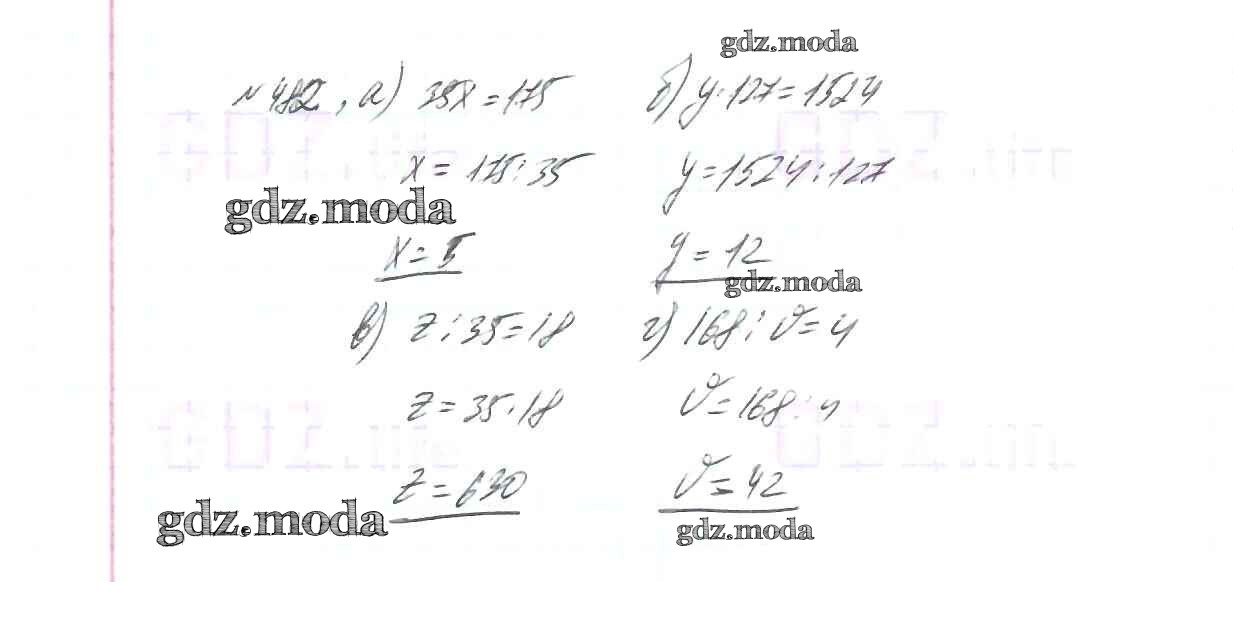 gdz.moda
№ 482, а) 35x = 175 б) y · 127 = 1524
x = 175 : 35 y = 1524 : 127
gdz.moda
x = 5 y = 12
gdz.moda
в) z : 35 = 18 г) 168 : v = 4
z = 35 · 18 v = 168 : 4
z = 630 v = 42
gdz.moda gdz.moda